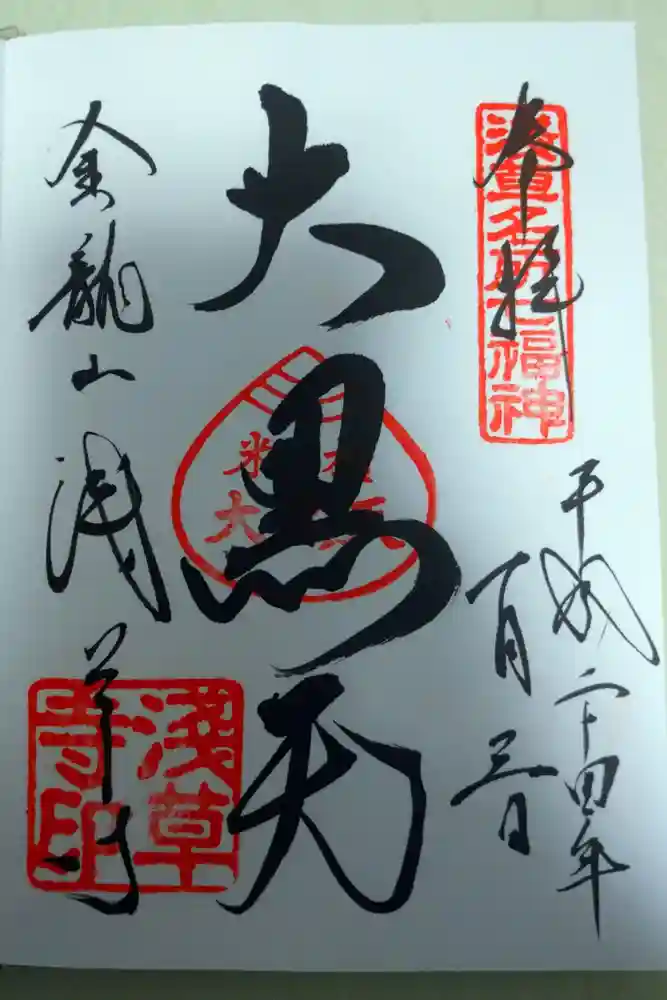 奉拝
浅草名所七福神
平成二十四年
月三日
大黒天
米
大
金龍山浅草寺
淺草
寺印